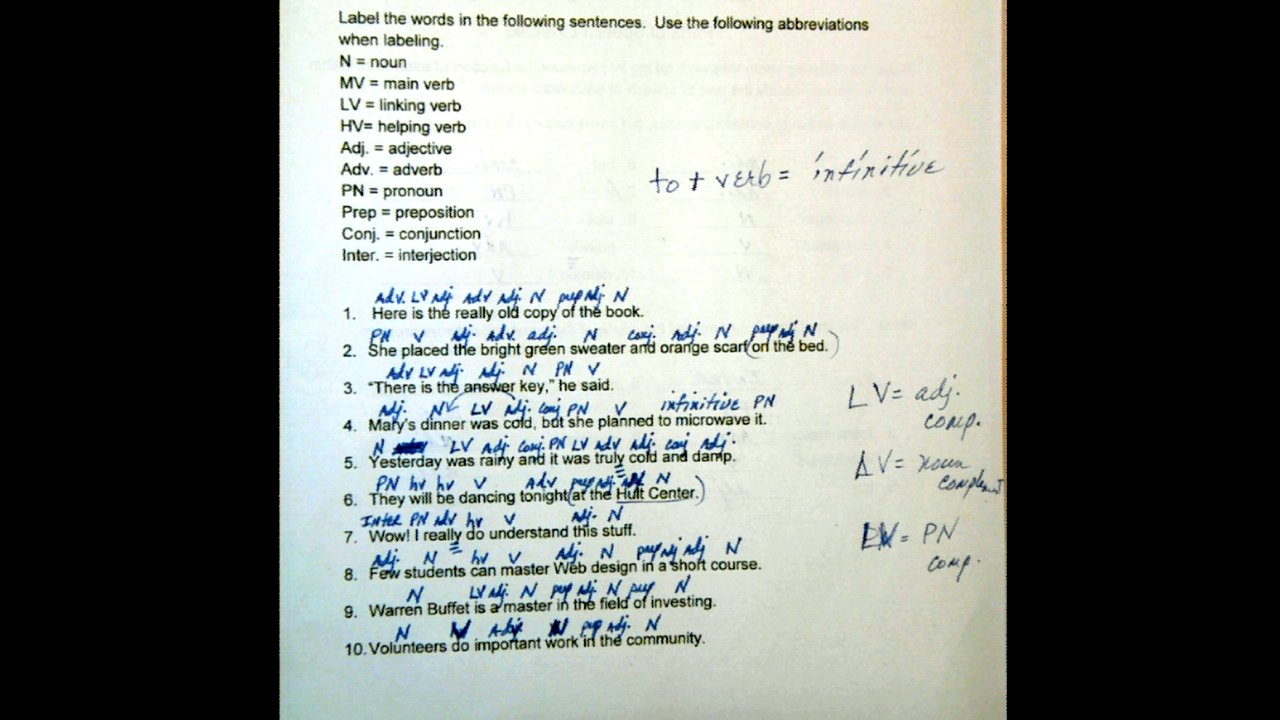 Label the words in the following sentences. Use the following abbreviations
when labeling.
N = noun
MV = main verb
LV = linking verb
HV= helping verb
Adj. = adjective
Adv. = adverb
PN = pronoun
to + verb = infinitive
Prep = preposition
Conj. = conjunction
Inter. = interjection
Adv. LV Adj Adv Adj. N prep Adj N
1. Here is the really old copy of the book.
PN V Adj. Adv. adj. N conj. Adj. N prep adj N
2. She placed the bright green sweater and orange scarf (on the bed.)
Adv LV Adj. Adj. N PN V
3. "There is the answer key," he said.
LV= adj.
comp.
Adj. N LV Adj. conj PN V infinitive PN
4. Mary's dinner was cold, but she planned to microwave it.
N LV Adj conj. PN LV Adv Adj. conj Adj.
5. Yesterday was rainy and it was truly cold and damp.
LV= noun
PN hv hv V Adv prep Adj. N
6. They will be dancing tonight (at the Hult Center.)
Inter PN adv hv V Adj. N
7. Wow! I really do understand this stuff.
LV= PN
comp.
Adj. N hv V Adj. N prep Adj adj N
8. Few students can master Web design in a short course.
N LV Adj. N prep Adj. N prep N
9. Warren Buffet is a master in the field of investing.
N V Adj. N prep Adj. N
10. Volunteers do important work in the community.